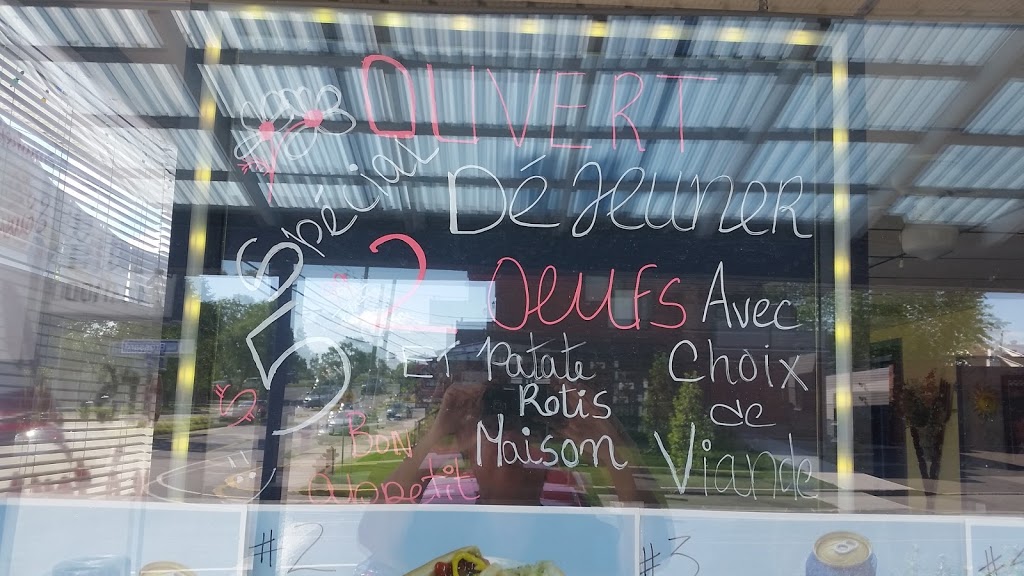 OUVERT
Spécial DéJeuner
5$ 2 OeuFs Avec
ET Patate Choix
Rotis de
Maison Viande
Bon
appetit
#2 #3